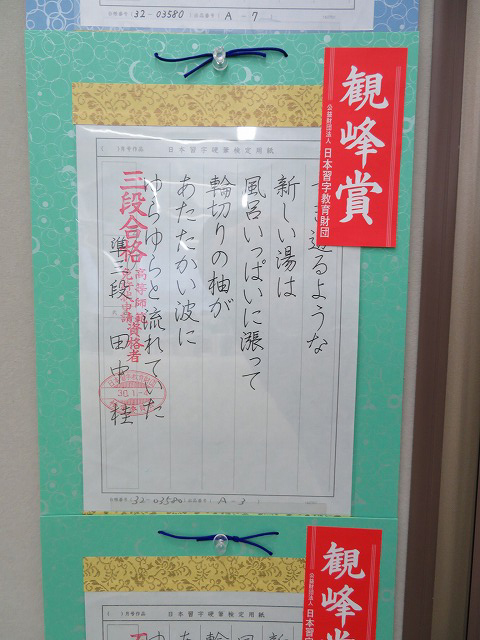 合格番号( 32-03580 )出品番号( A-7 )
観峰賞
公益財団法人 日本習字教育財団
( )月号作品 日本習字硬筆検定用紙
迸るような
新しい湯は
風呂いっぱいに漲って
輪切りの柚が
あたたかい波に
ゆらゆらと流れていた
準三段 田中 桂
三段合格
高等師範資格者
合格番号( 32-03580 )出品番号( A-3 )
観峰賞
公益財団法人 日本習
( )月号作品 日本習字硬筆検定用紙
新
輪
あ
ゆ